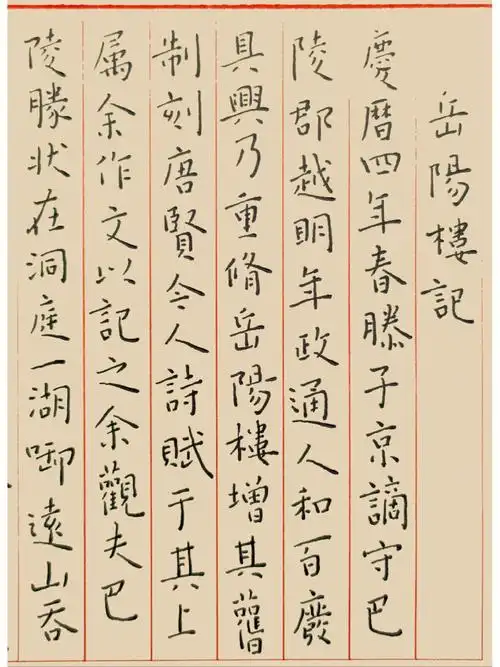 岳陽樓記
慶曆四年春滕子京謫守巴
陵郡越明年政通人和百廢
具興乃重脩岳陽樓增其舊
制刻唐賢今人詩賦于其上
属余作文以記之余觀夫巴
陵勝状在洞庭一湖啣遠山吞